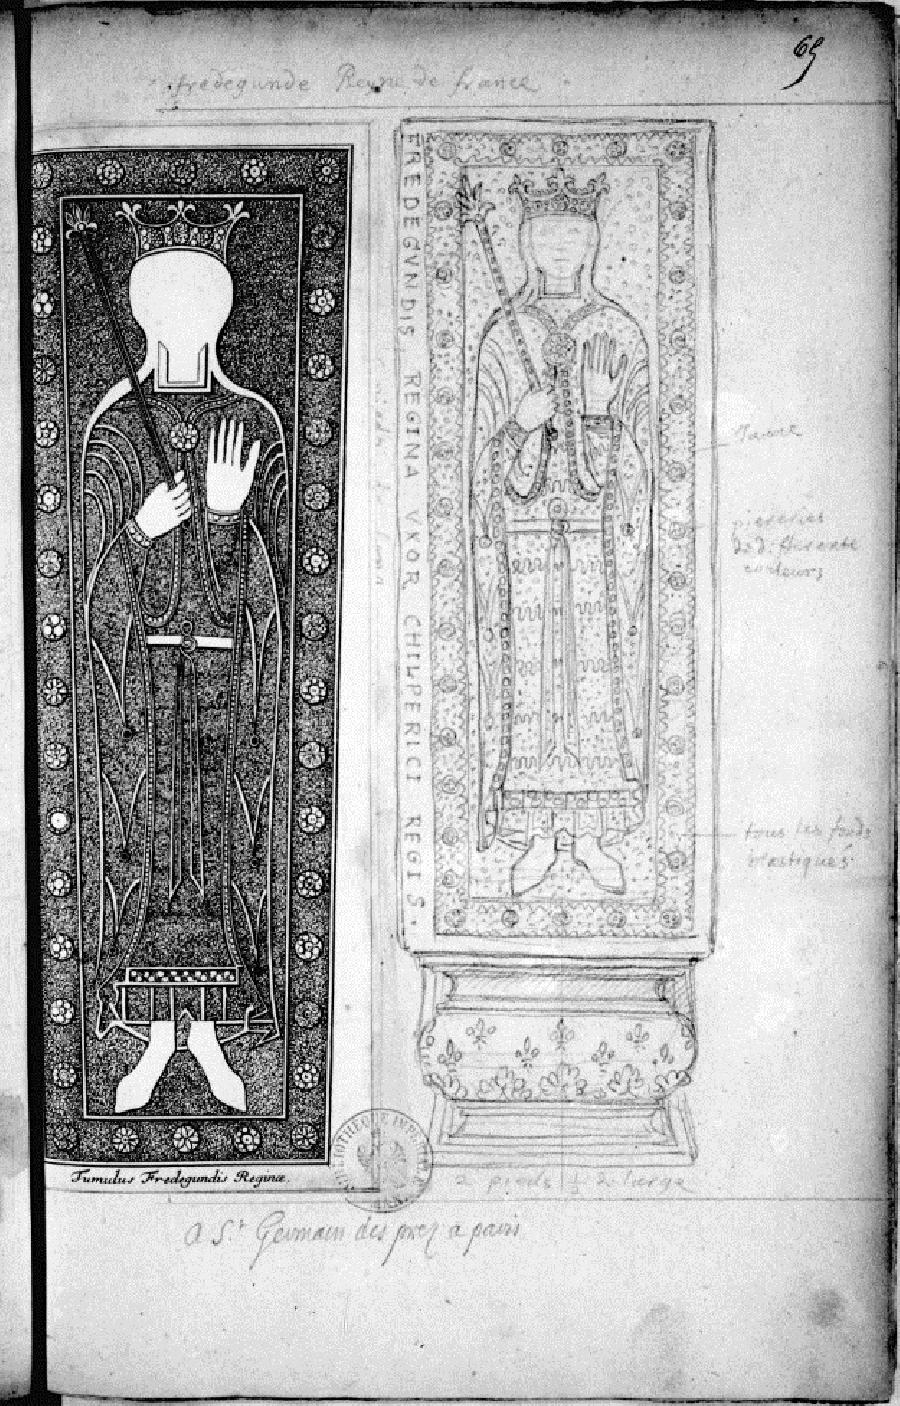 69
fredegunde Reyne de france
FREDEGVNDIS REGINA VXOR CHILPERICI REGIS.
Jaune
piereries
de differente
couleurs
tous les fonds
mastiqués
Tumulus Fredegundis Reginæ.
BIBLIOTHEQUE IMPERIALE
2 pieds ½ de large
a St Germain des prez a paris